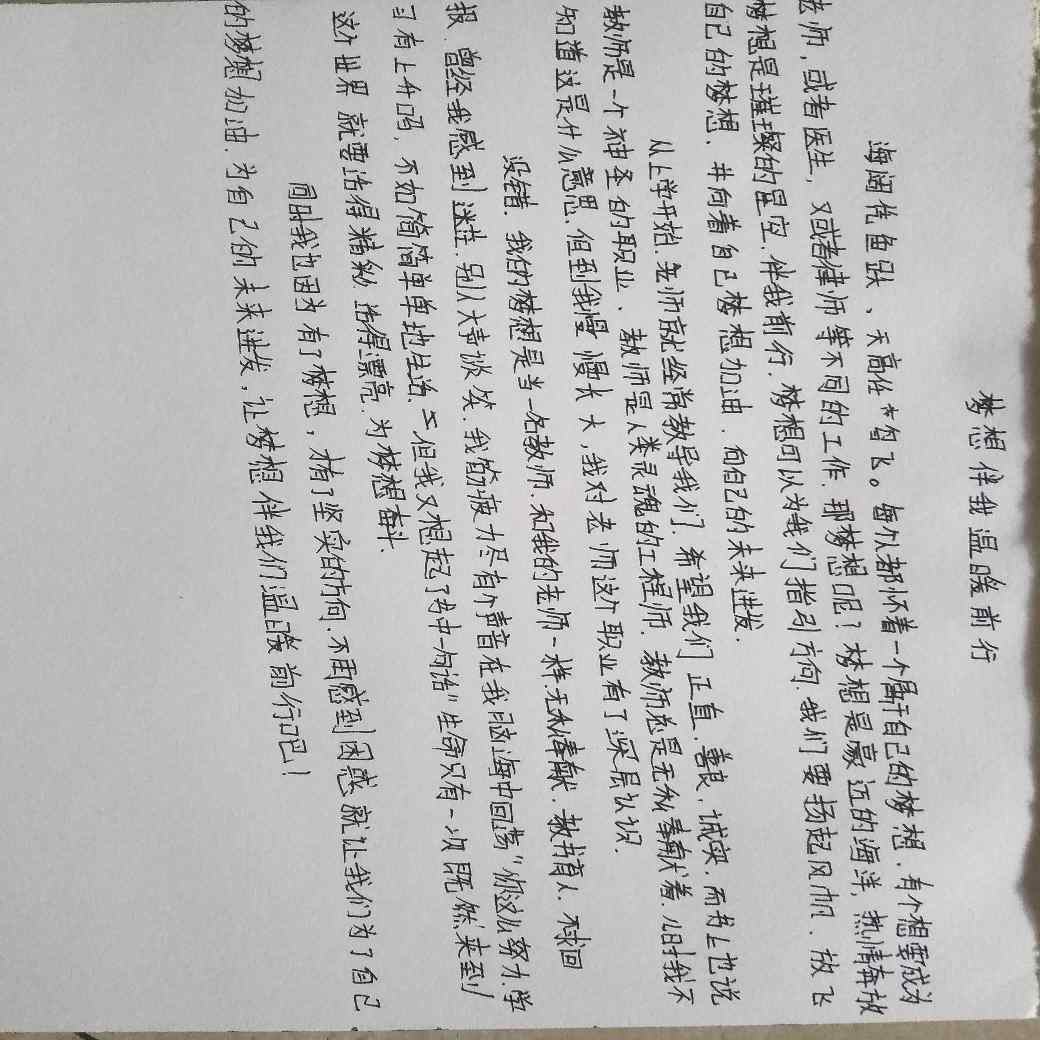 梦想伴我温暖前行
海阔凭鱼跃、天高任鸟飞。每个人都怀着一个属于自己的梦想.有个想要成为
老师,或者医生,又或者律师等不同的工作.那梦想呢?梦想是豪迈的海洋,热情奔放
梦想是璀璨的星空.伴我前行.梦想可以为我们指引方向.我们要扬起风帆.放飞
自己的梦想.并向着自己梦想加油.向自己的未来进发.
从上学开始.老师就经常教导我们.希望我们正直.善良.诚实.而书上也说
教师是一个神圣的职业、教师是人类灵魂的工程师.教师总是无私奉献着.儿时我不
知道这是什么意思.但到我慢慢长大,我对老师这个职业有了深层认识.
没错.我的梦想是当一名教师.和我的老师一样.无私奉献.教书育人.不求回
报.曾经我感到迷茫.别人大声谈笑.我筋疲力尽有个声音在我脑海中回荡"你这么努力.学
习有上升吗,不如简简单单地生活.但我又想起了书中一句话"生命只有一次既然来到
这个世界就要活得精彩活得漂亮.为梦想奋斗.
同时我也因为有了梦想,才有了坚实的方向.不再感到困惑就让我们为了自己
的梦想加油.为自己的未来进发,让梦想伴我们温暖前行吧!